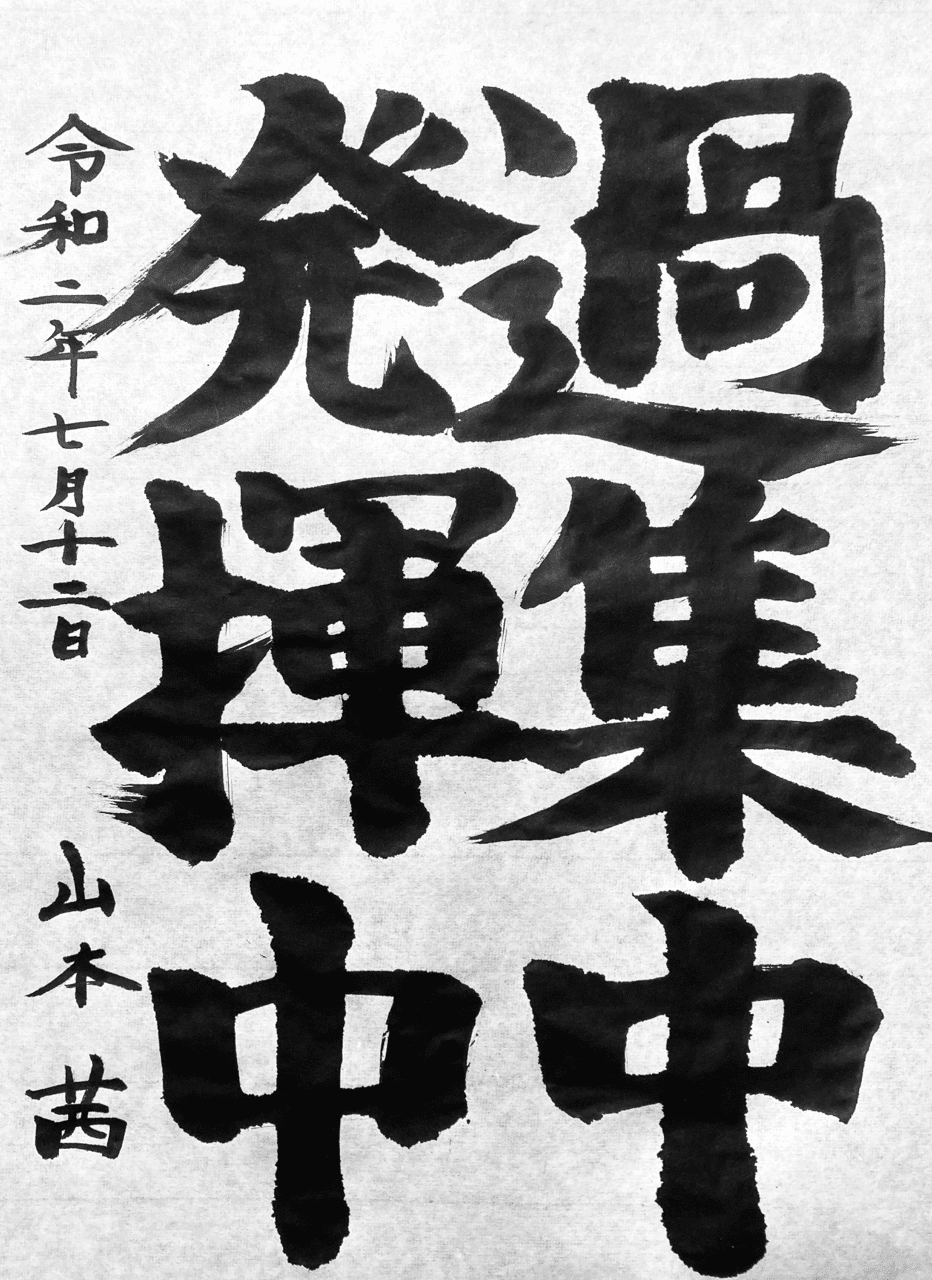 過集中
発揮中
令和二年七月十二日 山本茜